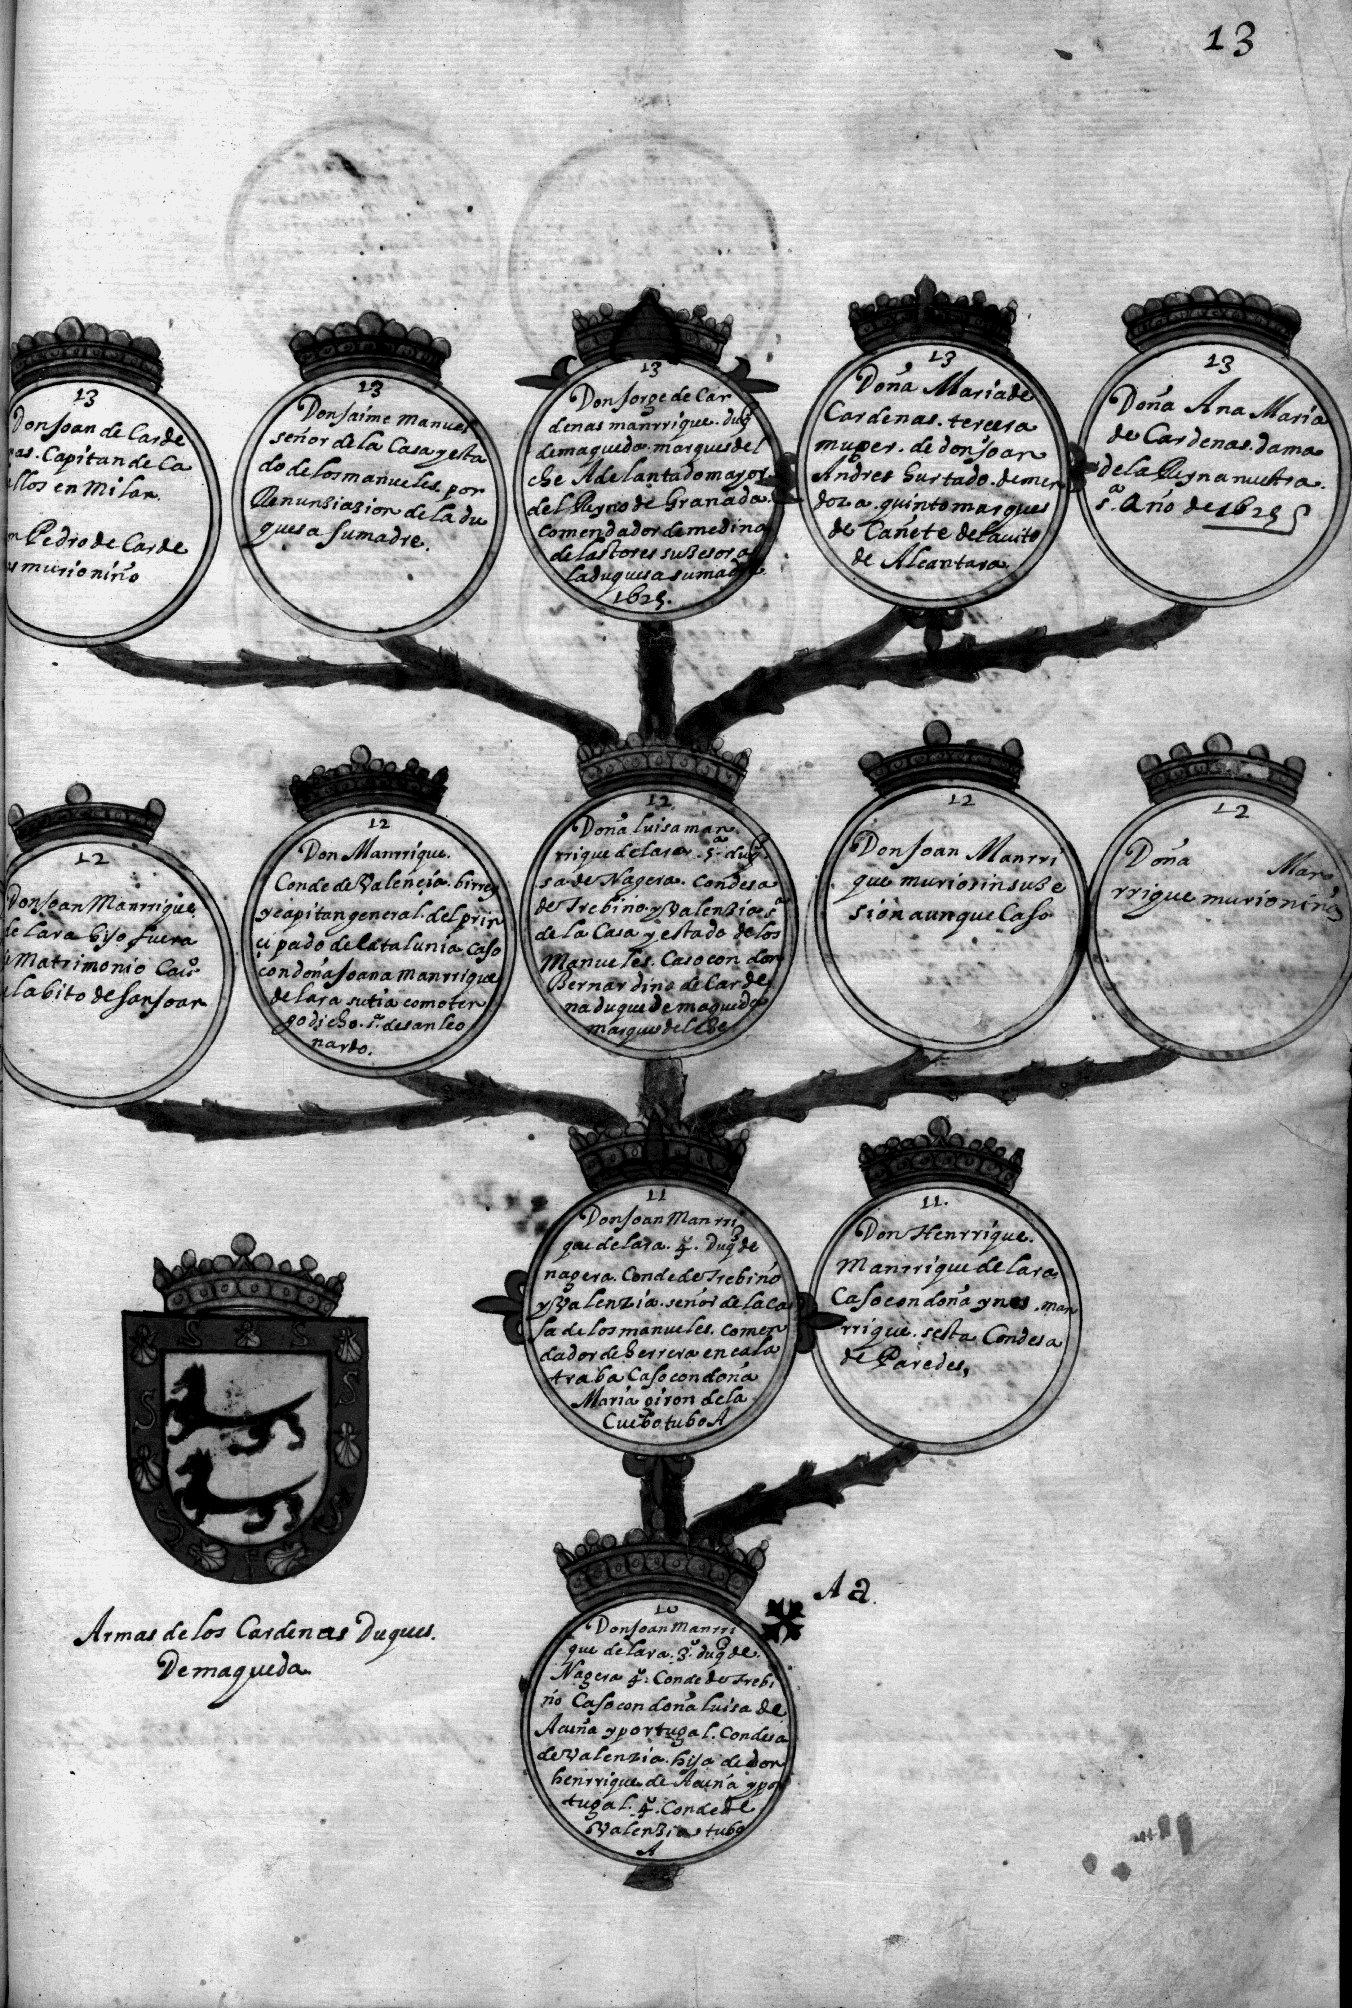 13
13
Don Joan de Carde
nas. Capitan de Ca
vallos en Milan.
Pedro de Carde
nas murio niño
13
Don Jaime Manuel
señor de la Casa y esta
do de los manueles. por
Renunziazion de la du
quesa su madre.
13
Don Jorge de Car
denas manrrique. duq̃
de maqueda. marques del
che Adelantado mayor
del Reyno de Granada.
comendador de medina
de las tores suzesor a
la duquesa su madre
1625.
13
Doña Maria de
Cardenas. tercera
muger. de don Joan
Andres hurtado. de men
doza. quinto marques
de Cañete del avito
de Alcantara
13
Doña Ana Maria
de Cardenas. dama
de la Reyna nuestra.
sª. Año de 1625
12
Don Joan Manrrique
de lara hijo fuera
de Matrimonio Cavº
del abito de san Joan
12
Don Manrrique.
Conde de Valencia. birrey
y capitan general. del prin
cipado de Catalunia Caso
con doña Joana manrrique
de lara su tia como ten
go dicho. sª. de san leo
nardo.
12
Doña luisa man
rrique de lara. 5ª. duq̃
sa de Nagera. Condesa
de Trebino. y Valenzia. sª
de la Casa y estado de los
Manueles. Caso con don
Bernardino de Carde
na duque de maqueda
marques del che
12
Don Joan Manrri
que murio sin suze
sion aunque Caso
12
Doña Man
rrique murio niña
11
Don Joan Manrri
que de lara. 4º. Duq̃ de
nagera. Conde de Trebiño
y Valenzia. señor de la Ca
sa de los manueles. comen
dador de herrera en cala
traba Caso con doña
Maria giron de la
Cueba tubo A
11.
Don Henrrique.
Manrrique de lara
Caso con doña ynes. man
rrique. sesta Condesa
de Paredes,
Armas de los Cardenas Duques.
De maqueda.
A a.
10
Don Joan Manrri
que de lara. 3º. duq̃ de.
Nagera 4º. Conde de Trebi
ño Caso con doña luisa de
Acuña y portugal. Condesa
de Valenzia. hija de don
henrrique de Acuña y por
tugal. 4º. Conde de
Valenzia tubo
A